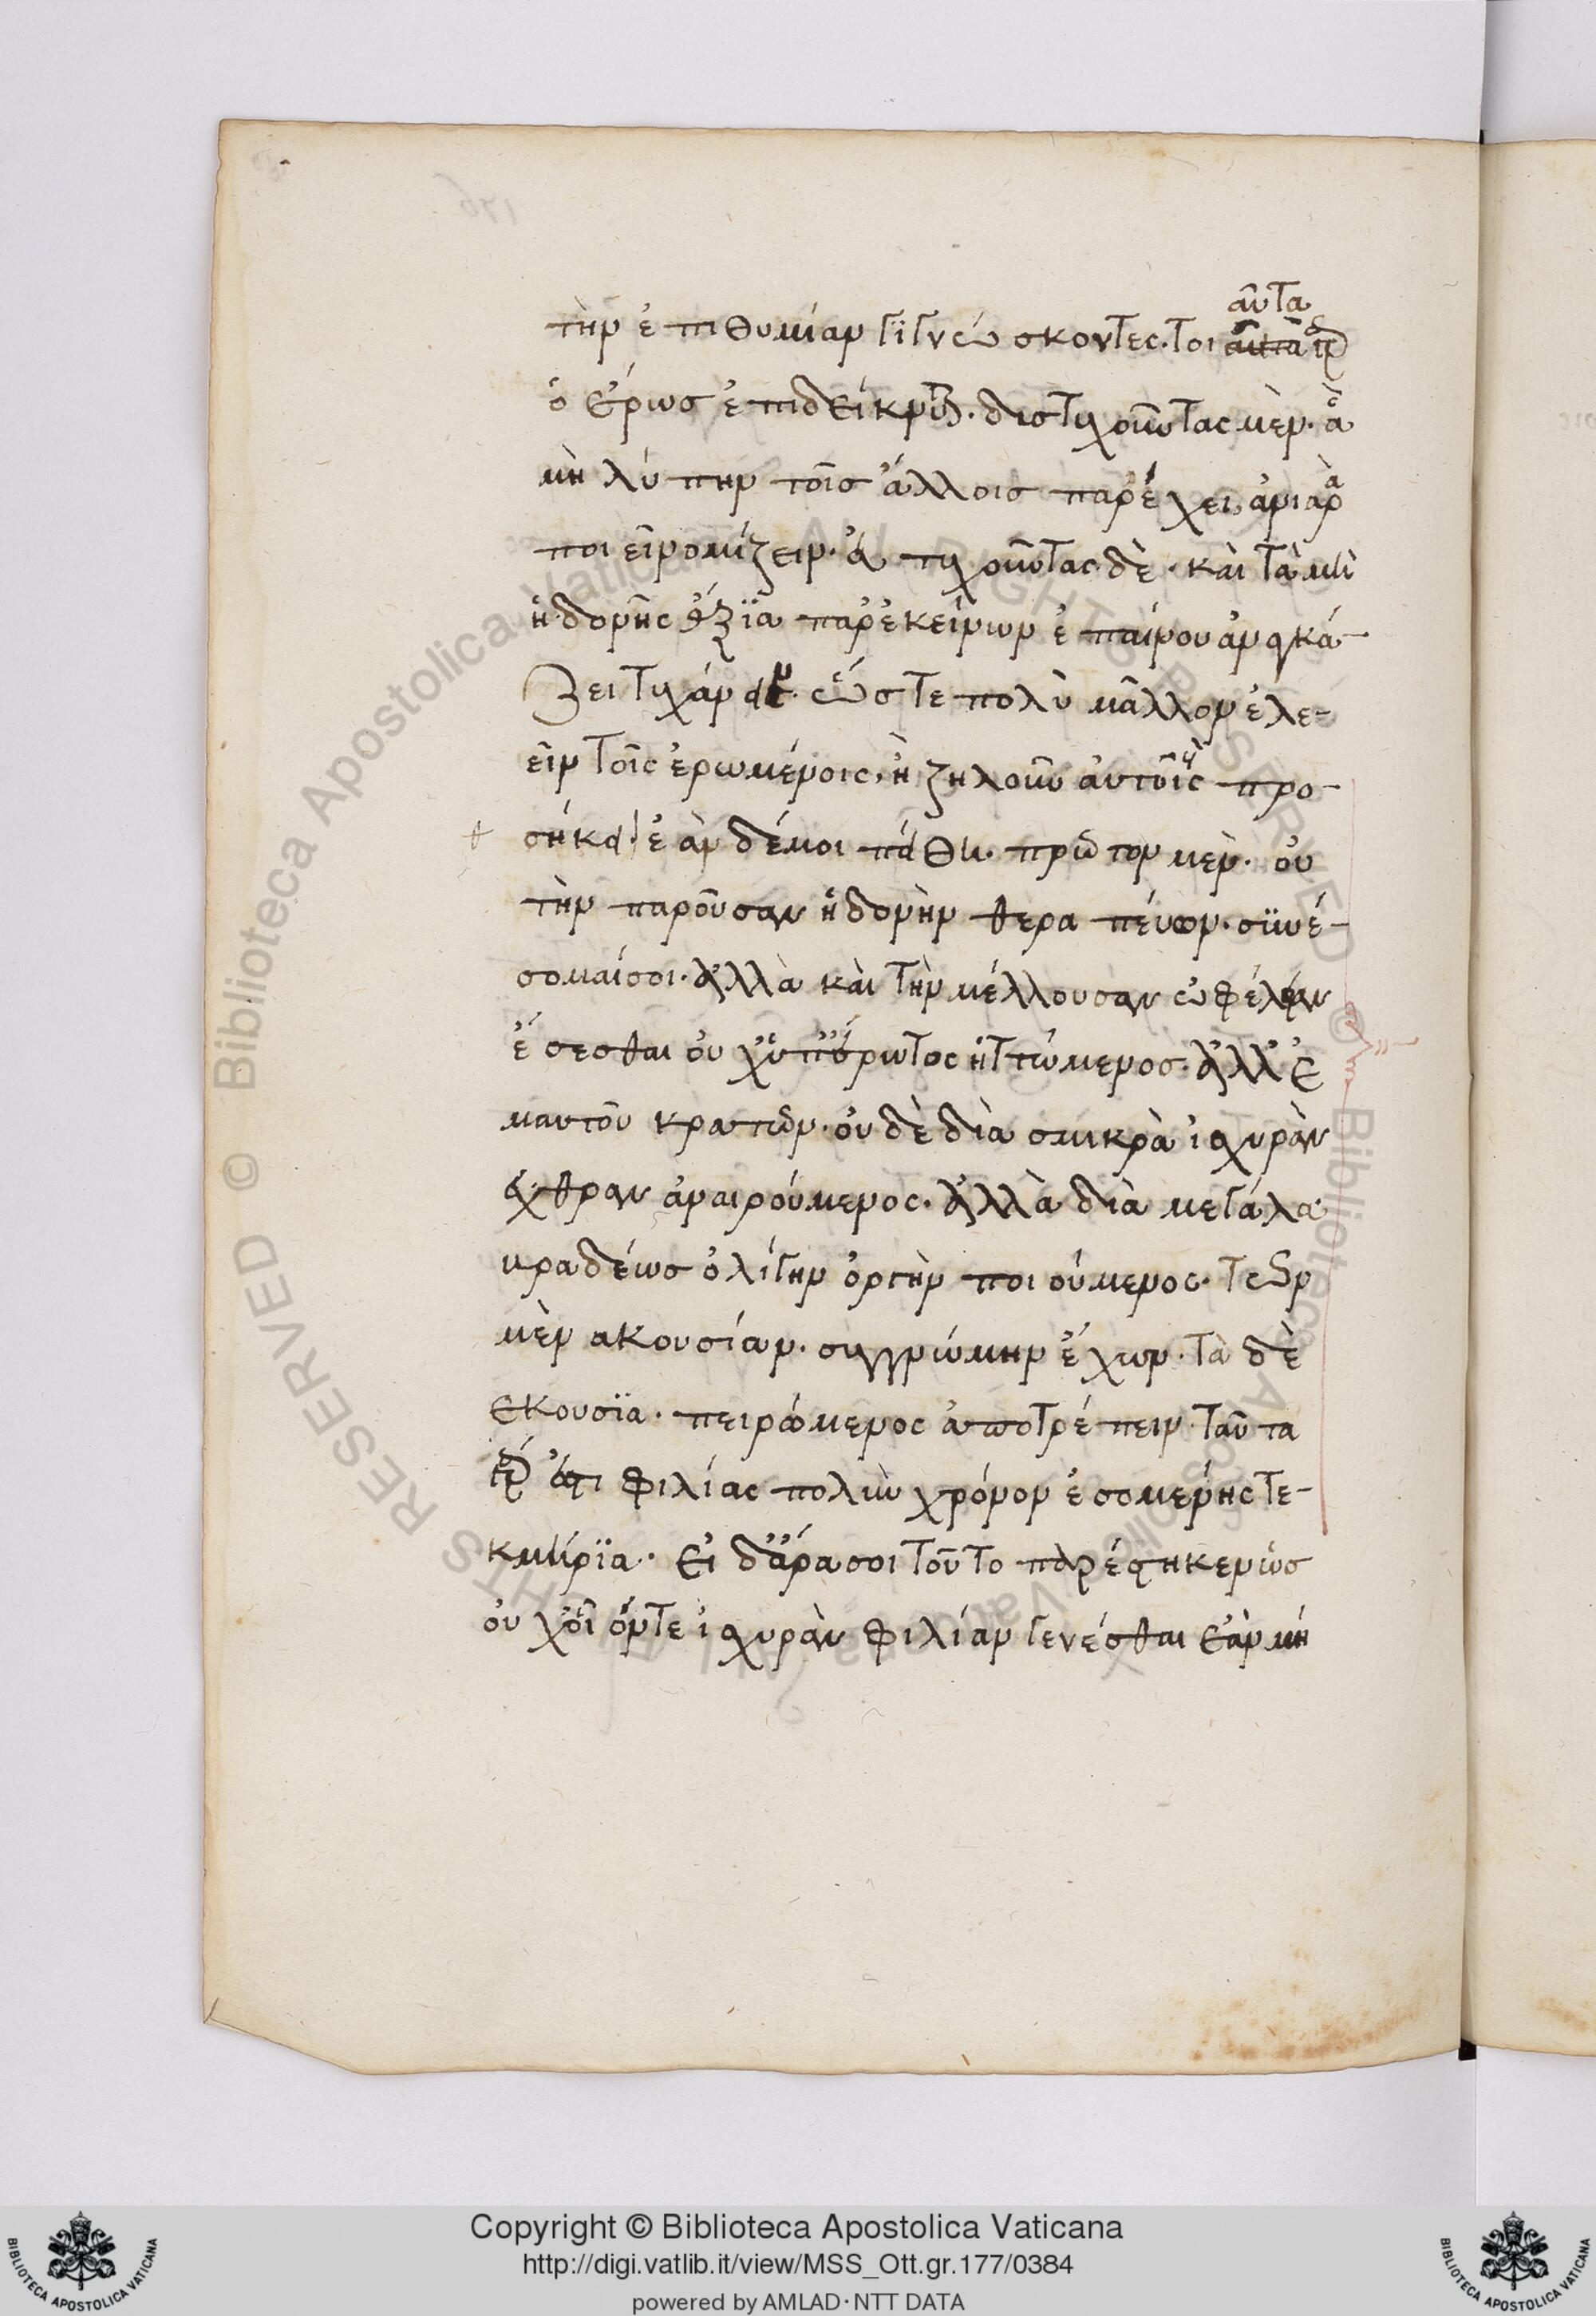 αὐτα
τὴν ἐπιθυμίαν γιγνώσκοντες. τοιαῦτα γὰρ
ὁ ἔρως ἐπιδείκνυται. δυστυχοῦντας μὲν. ἃ
μὴ λύπην τοῖς ἄλλοις παρέχει, ἀνιαρὰ
ποιεῖ νομίζειν. εὐτυχοῦντας δὲ. καὶ τὰ μὴ
ἡδονῆς ἄξϊα παρ' ἐκείνων ἐπαίνου ἀναγκά-
ζει τυγχάνειν. ὥστε πολὺ μᾶλλον ἐλε-
εῖν τοῖς ἐρωμένοις, ἢ ζηλοῦν αὐτοὺς προ-
σήκει. ἐὰν δέ μοι πείθη. πρῶτον μὲν. οὐ
τὴν παροῦσαν ἡδονὴν θεραπεύων. συνέ-
σομαί σοι. ἀλλὰ καὶ τὴν μέλλουσαν ὠφέλειαν
ἔσεσθαι οὐχ ὑπ' ἔρωτος ἡττώμενος. ἀλλ' ἐ
μαυτοῦ κρατῶν. οὐδὲ διὰ σμικρὰ ἰσχυρὰν
ἔχθραν ἀναιρούμενος. ἀλλὰ διὰ μεγάλα
βραδέως ὀλίγην ὀργὴν ποιούμενος. τῶν
μὲν ακουσίων. συγγνώμην ἔχων. τὰ δὲ
εκουσϊα. πειρώμενος ἀποτρέπειν. ταῦτα
γάρ ἐστι φιλίας πολὺν χρόνον ἐσομένης τε-
κμήρϊα. εἰ δ' ἄρα σοι τοῦτο παρέστηκεν ὡς
οὐχ οἷόν τε ἰσχυρὰν φιλίαν γενέσθαι ἐὰν μή
Copyright © Biblioteca Apostolica Vaticana
http://digi.vatlib.it/view/MSS_Ott.gr.177/0384
powered by AMLAD·NTT DATA
BIBLIOTECA APOSTOLICA VATICANA
BIBLIOTECA APOSTOLICA VATICANA